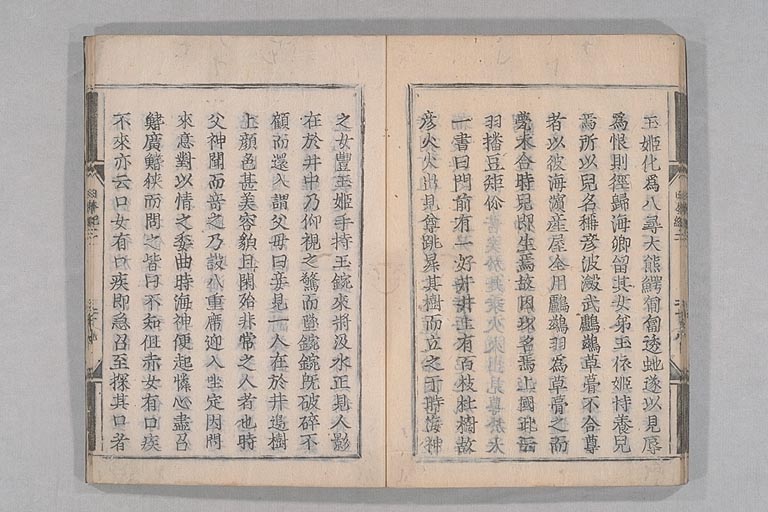 玉姬化爲八尋大熊鰐匍匐逶虵遂以見辱
爲恨則徑歸海鄉留其女弟玉依姬持養兒
焉所以兒名稱彥波瀲武鸕鷀草葺不合尊
者以彼海濱產屋全用鸕鷀羽爲草葺之而
甍未合時兒卽生焉故因以名焉上國此云
羽播豆矩儞
一書曰門前有一好井井上有百枝杜樹故
彥火火出見尊跳昇其樹而立之于時海神
之女豐玉姬手持玉鋺來將汲水正見人影
在於井中乃仰視之驚而墜鋺鋺旣破碎不
顧而還入謂父母曰妾見一人在於井邊樹
上顏色甚美容貌且閑殆非常之人者也時
父神聞而奇之乃設八重席迎入坐定因問
來意對以情之委曲時海神便起憐心盡召
鰭廣鰭狹而問之皆曰不知但赤女有口疾
不來亦云口女有口疾卽急召至探其口者